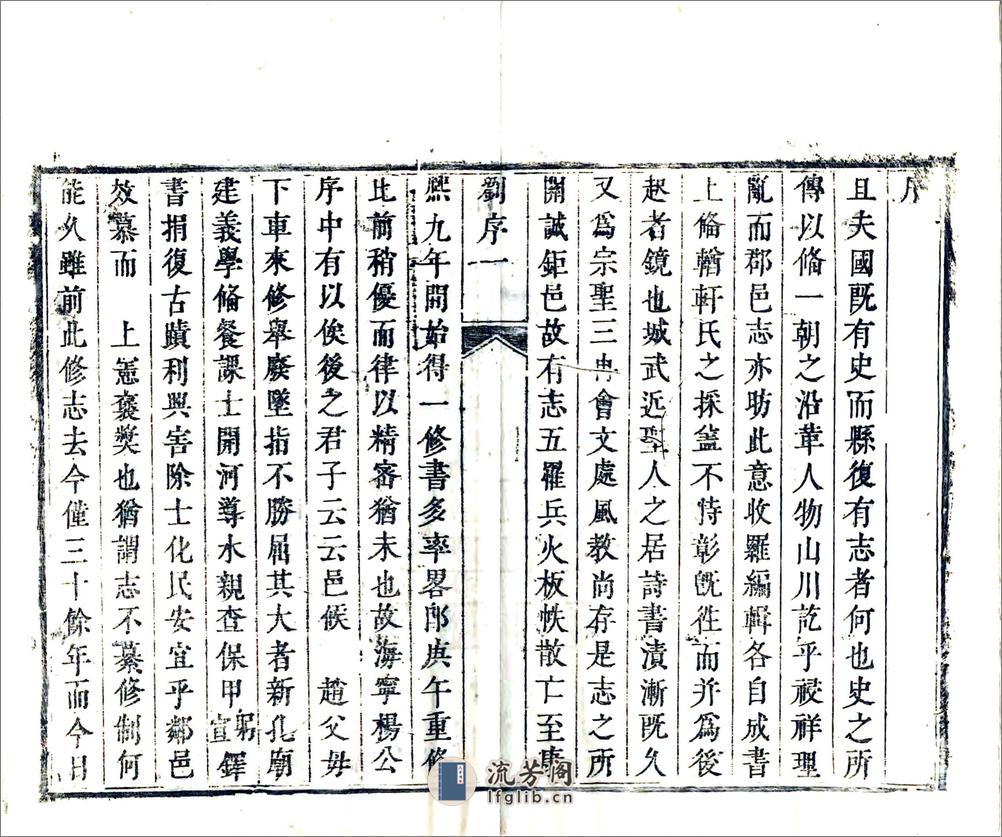 序
且夫國既有史而縣復有志者何也史之所
傳以俻一朝之沿革人物山川訖乎祲祥理
亂而郡邑志亦昉此意收羅編輯各自成書
上俻輶軒氏之採葢不恃彰旣徃而并爲後
起者鏡也城武近聖人之居詩書漬漸既久
又爲宗聖三冉會文處風教尚存是志之所
開誠鉅邑故有志五罹兵火板帙散亡至康
劉序一
熈九年開始得一修書多率畧郎庚午重修
比前稍優而律以精審猶未也故海寧楊公
序中有以俟後之君子云云邑候 趙父母
下車來修舉廢墜指不勝屈其大者新孔廟
建義學俻餐課士開河導水親查保甲躬宣鐸
書捐復古蹟利興害除士化民安宜乎鄰邑
效慕而 上憲褒獎也猶謂志不纂修制何
能久雖前此修志去今僅三十餘年而今日
流芳阁
lfglib.cn